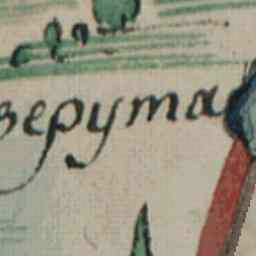 верута